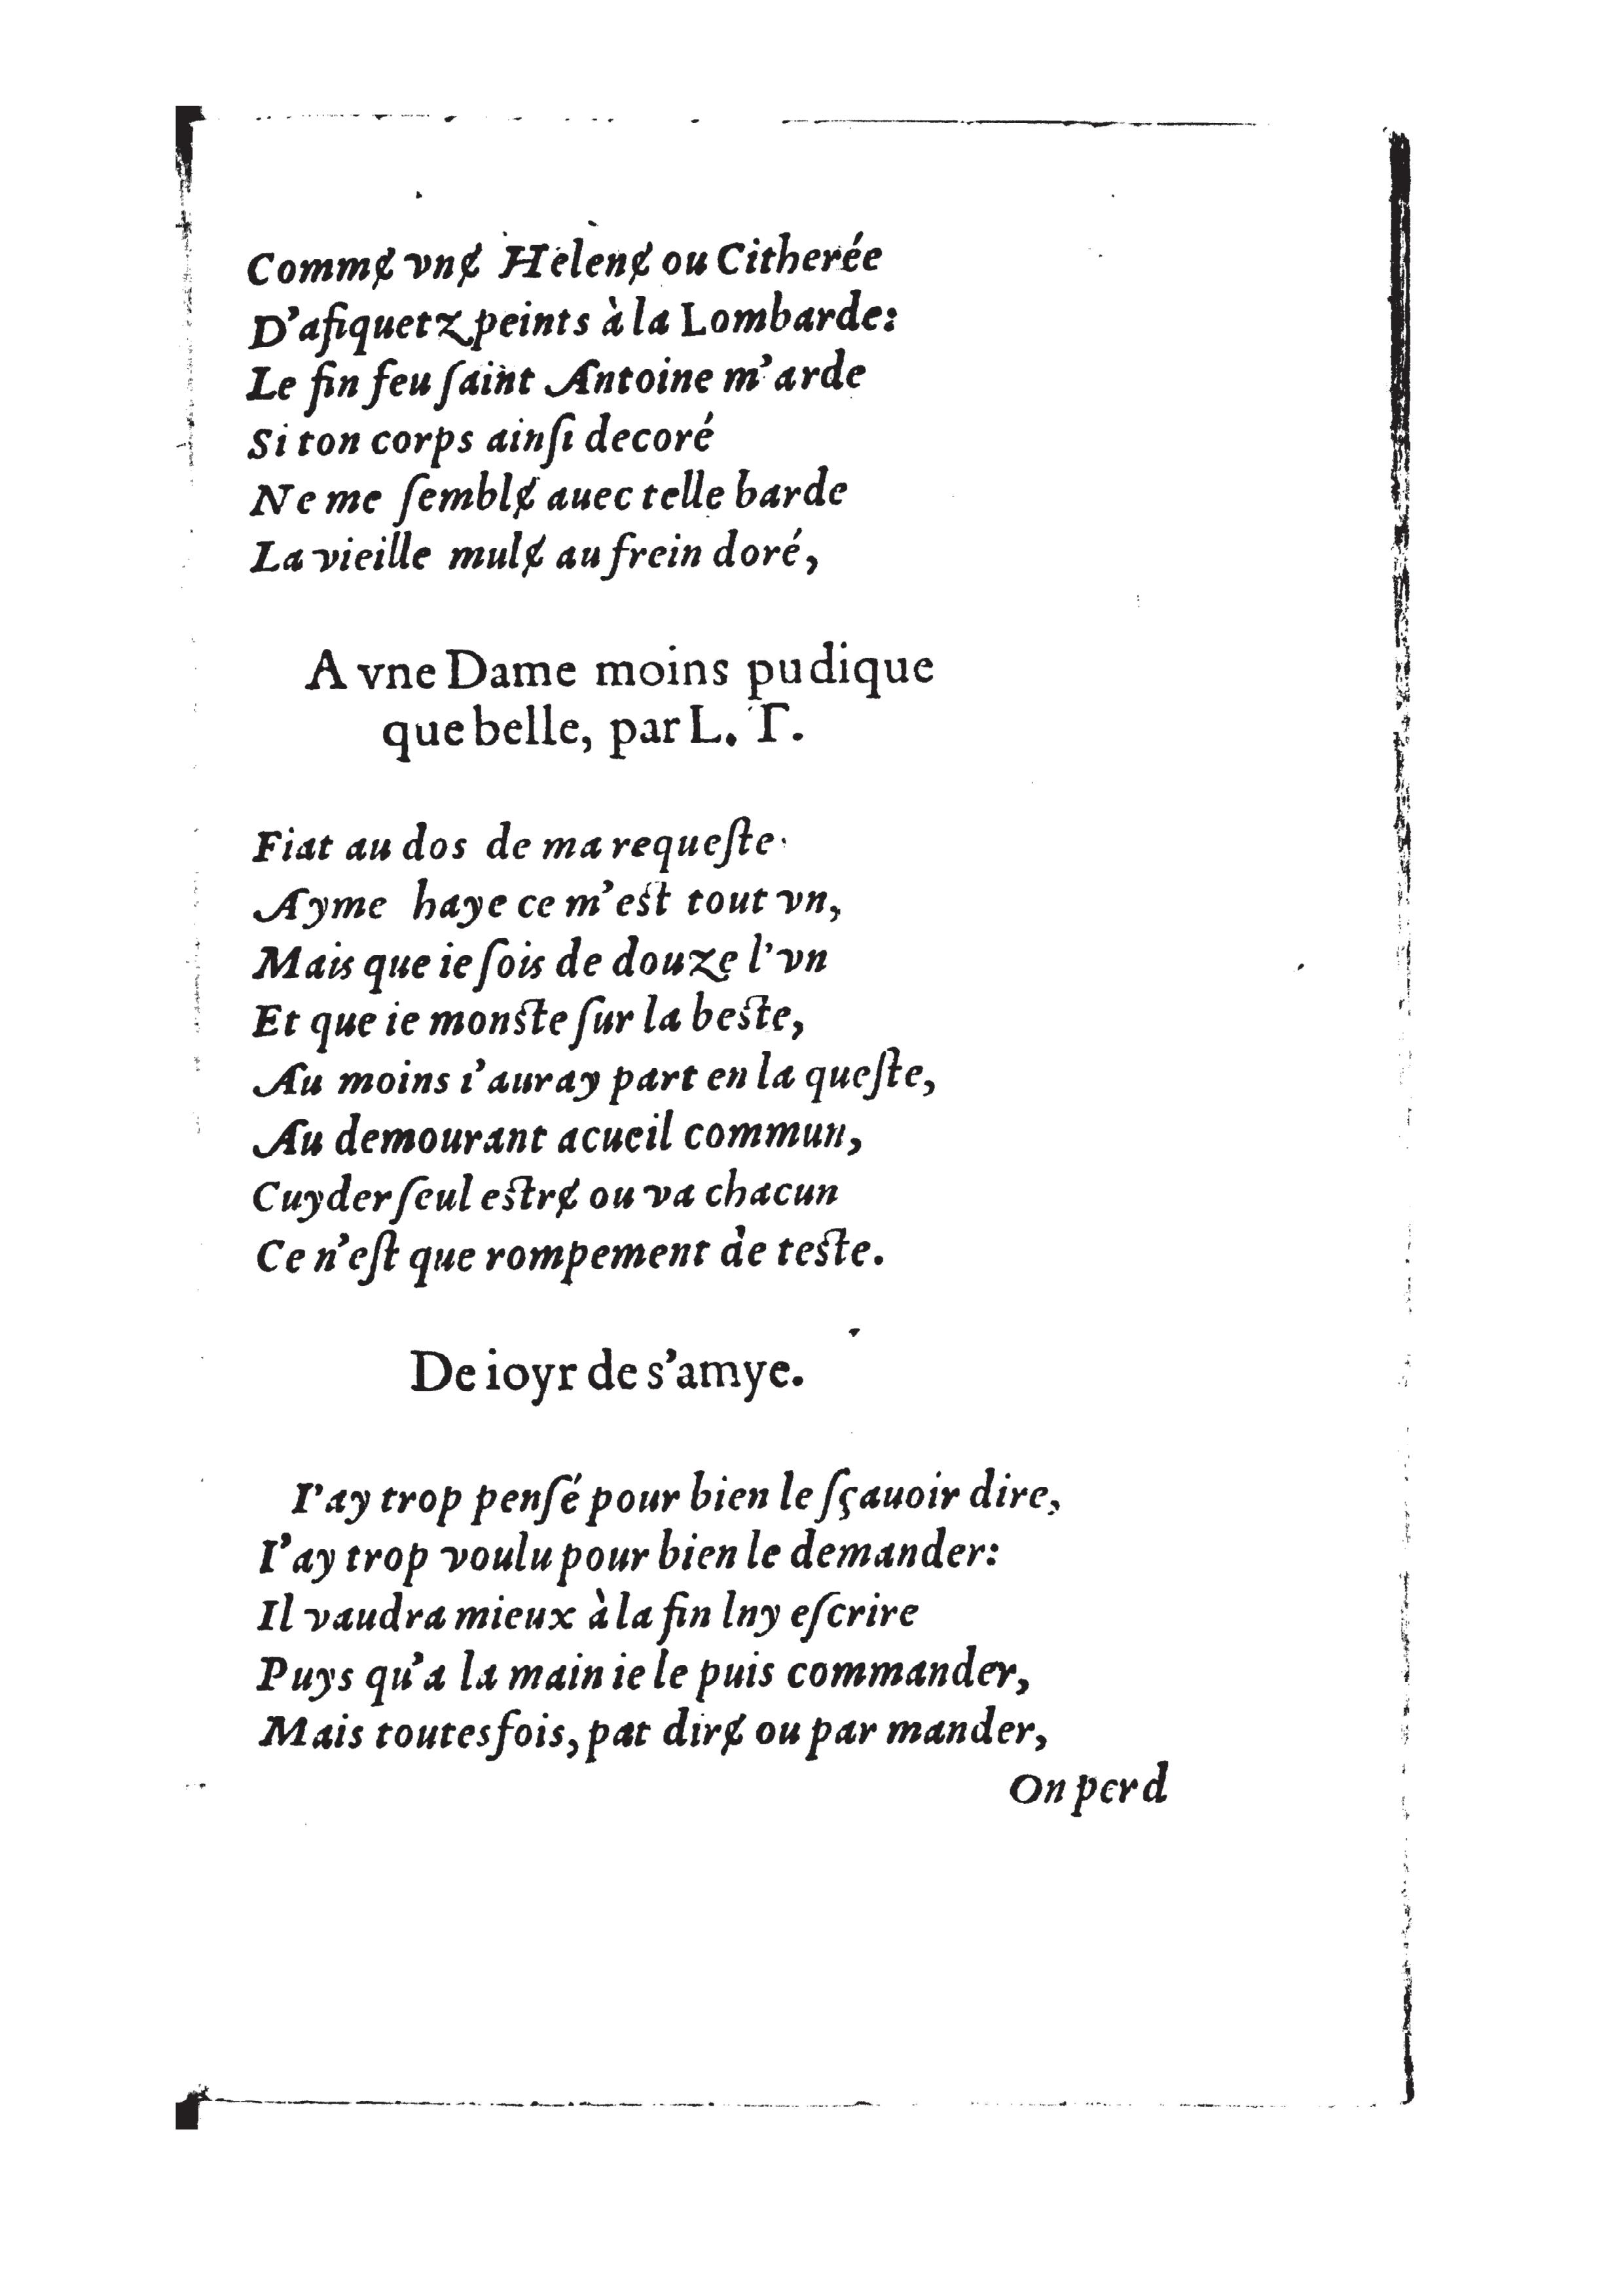 Commɇ vnɇ Helenɇ ou Citherée
D'afiquetz peints à la Lombarde:
Le fin feu ſaint Antoine m'arde
Si ton corps ainſi decoré
Ne me ſemblɇ auec telle barde
La vieille mulɇ au frein doré,
A vne Dame moins pudique
que belle, par L. T.
Fiat au dos de ma requeſte.
Ayme haye ce m'eſt tout vn,
Mais que ie ſois de douze l'vn
Et que ie monſte ſur la beſte,
Au moins i'auray part en la queſte,
Au demourant acueil commun,
Cuyder ſeul eſtrɇ ou va chacun
Ce n'eſt que rompement de teſte.
De ioyr de s'amye.
I'ay trop penſé pour bien le ſçauoir dire,
I'ay trop voulu pour bien le demander:
Il vaudra mieux à la fin lny eſcrire
Puys qu'a la main ie le puis commander,
Mais toutesfois, pat dirɇ ou par mander,
On perd